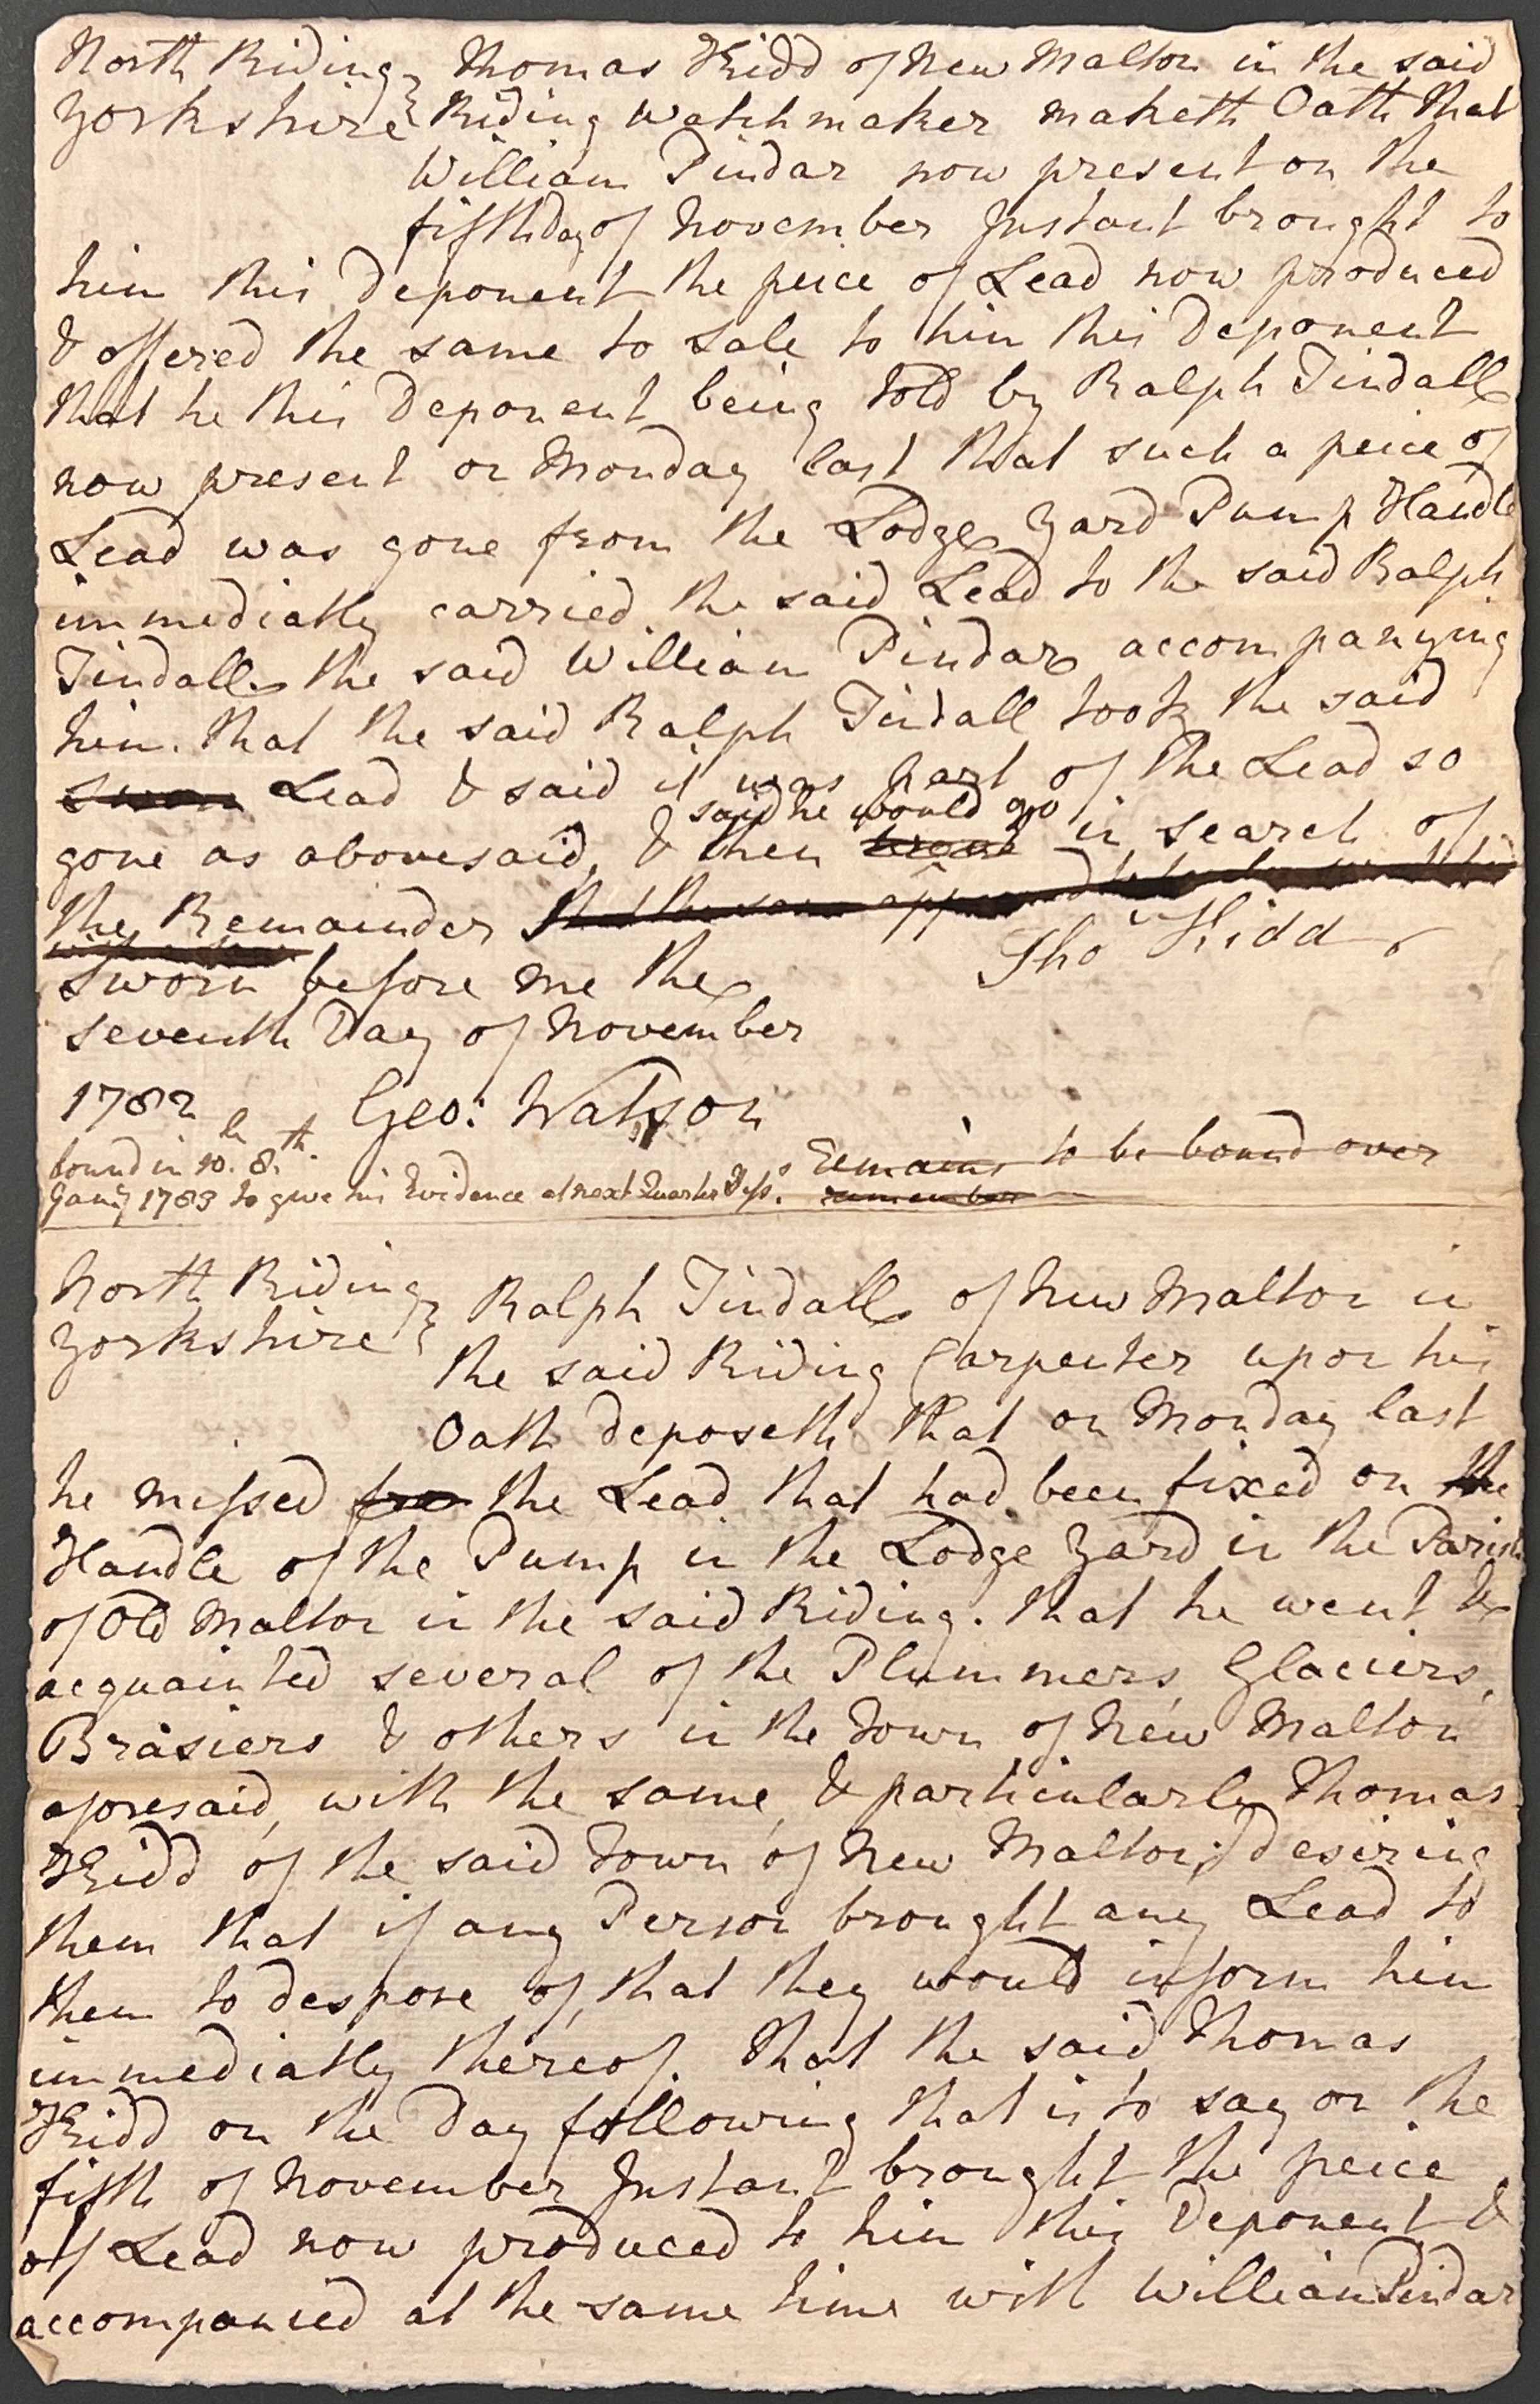 North Riding Thomas Kidd of New Malton in the said
Yorkshire Riding Watchmaker maketh Oath that
William Pindar now present on the
fifth day of November Instant brought to
him this Deponent the peice of Lead now produced
& offered the same to Sale to him this Deponent
that he this Deponent being told by Ralph Tindall
now present on Monday last that such a peice of
Lead was gone from the Lodge Yard Pump Handle
immediatly carried the said Lead to the said Ralph
Tindall the said William Pindar accompanying
him. that the said Ralph Tindall took the said
Sworn Lead & said it was part of the Lead so
said he would go
gone as abovesaid, & then in search of
the Remainder that the same
Tho Kidd
Sworn before me the
seventh Day of November
1782 Geo: Watson
bound in 10. li 8. th. Remains to be bound over
Jany 1783 to give his Evidence at next Quarter Sess. remember
North Riding Ralph Tindall of New Malton in
Yorkshire the said Riding Carpenter upon his
Oath deposeth that on Monday last
he missed fro the Lead that had been fixed on the
Handle of the Pump in the Lodge Yard in the Parish
of Old Malton in the said Riding. that he went &
acquainted several of the Plummers, Glaciers,
Brasiers & others in the Town of New Malton
aforesaid, with the same, & particularly Thomas
Kidd of the said Town of New Malton; desiring
them that if any Person brought any Lead to
them to despose of, that they would inform him
immediatly thereof. that the said Thomas
Kidd on the Day following that is to say on the
fifth of November Instant brought the peice
of Lead now produced to him this Deponent &
accompanied at the same time with William Pindar